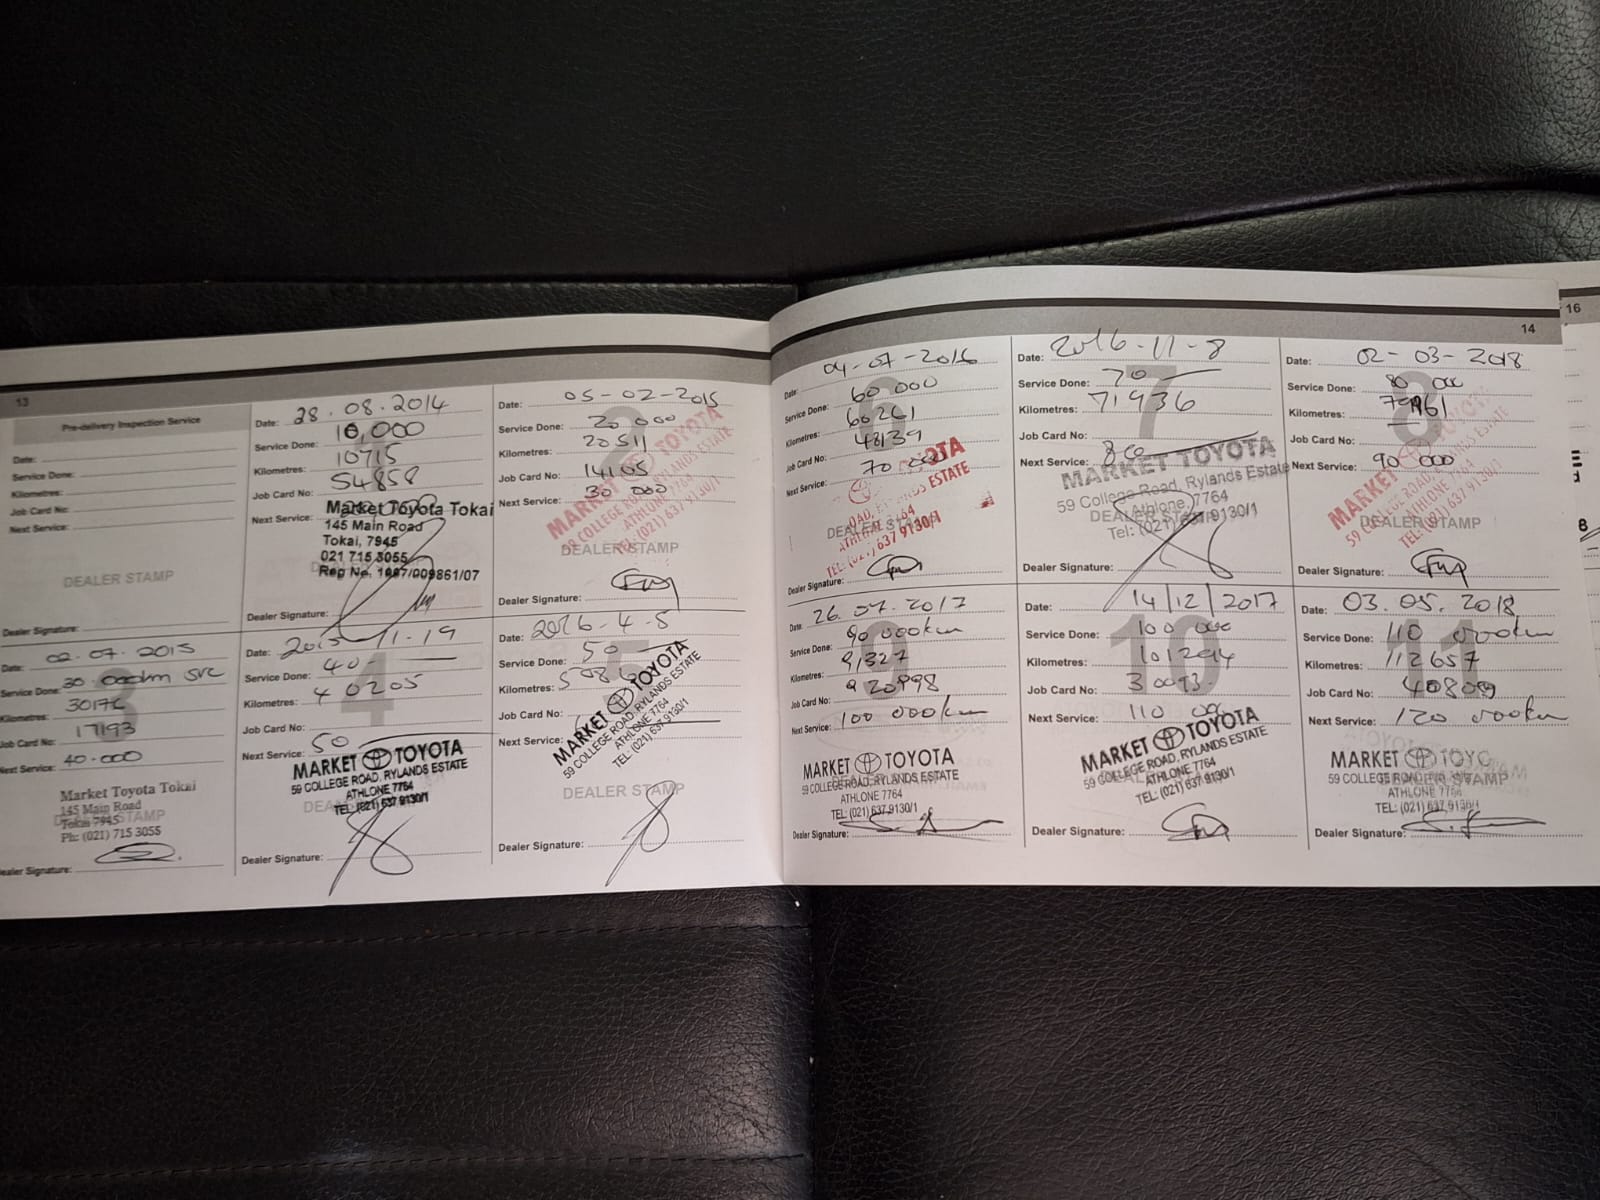 13
Pre-delivery Inspection Service
Date:
Service Done:
Kilometres:
Job Card No:
Next Service:
DEALER STAMP
Dealer Signature:
Date: 28.08.2014
Service Done: 10,000
Kilometres: 10715
Job Card No: 54858
Next Service:
Market Toyota Tokai
145 Main Road
Tokai, 7945
021 715 3055
Reg No. 1997/009861/07
Dealer Signature:
2
Date: 05-02-2015
Service Done: 20 000
Kilometres: 20511
Job Card No: 14105
Next Service: 30 000
MARKET TOYOTA
59 COLLEGE ROAD, RYLANDS ESTATE
ATHLONE 7764
TEL: (021) 637 9130/1
DEALER STAMP
Dealer Signature:
3
Date: 02.07.2015
Service Done: 30 000km svc
Kilometres: 30176
Job Card No: 17193
Next Service: 40.000
Market Toyota Tokai
145 Main Road
Tokai 7945
Ph: (021) 715 3055
Dealer Signature:
4
Date: 2015-11-19
Service Done: 40-
Kilometres: 40205
Job Card No:
Next Service: 50
MARKET TOYOTA
59 COLLEGE ROAD, RYLANDS ESTATE
ATHLONE 7764
TEL: (021) 637 9130/1
Dealer Signature:
5
Date: 2016-4-5
Service Done: 50
Kilometres:
Job Card No:
Next Service:
MARKET TOYOTA
59 COLLEGE ROAD, RYLANDS ESTATE
ATHLONE 7764
TEL: (021) 637 9130/1
DEALER STAMP
Dealer Signature:
14
6
Date: 04-07-2016
Service Done: 60 000
Kilometres: 60261
Job Card No: 48139
Next Service: 70 000
DEALER STAMP
TEL: (021) 637 9130/1
Dealer Signature:
7
Date: 2016-11-8
Service Done: 70
Kilometres: 71936
Job Card No:
Next Service: 80
MARKET TOYOTA
59 College Road, Rylands Estate
Athlone, 7764
Tel: (021) 637 9130/1
Dealer Signature:
8
Date: 02-03-2018
Service Done: 80 000
Kilometres:
Job Card No:
Next Service: 90 000
MARKET TOYOTA
59 COLLEGE ROAD, RYLANDS ESTATE
ATHLONE 7764
TEL: (021) 637 9130/1
DEALER STAMP
Dealer Signature:
9
Date: 26.07.2017
Service Done: 90 000km
Kilometres: 91327
Job Card No: 20998
Next Service: 100 000km
MARKET TOYOTA
59 COLLEGE ROAD, RYLANDS ESTATE
ATHLONE 7764
TEL: (021) 637 9130/1
Dealer Signature:
10
Date: 14/12/2017
Service Done: 100 000
Kilometres: 101294
Job Card No: 30093
Next Service: 110 000
MARKET TOYOTA
59 COLLEGE ROAD, RYLANDS ESTATE
ATHLONE 7764
TEL: (021) 637 9130/1
Dealer Signature:
11
Date: 03.05.2018
Service Done: 110 000km
Kilometres: 112657
Job Card No: 40809
Next Service: 120 000km
MARKET TOYO
59 COLLEGE ROAD
DEALER STAMP
ATHLONE 7764
TEL: (021) 637 9130/1
Dealer Signature:
16
8